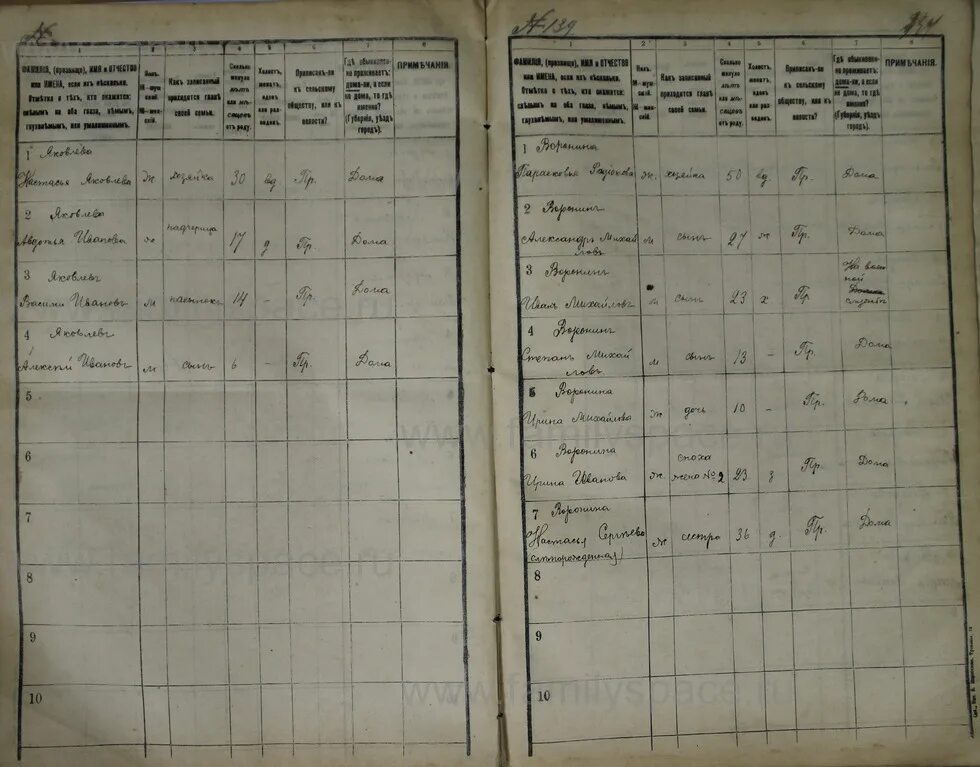 №
1 2 3 4 5 6 7 8
ФАМИЛІЯ, (прозвище), ИМЯ и ОТЧЕСТВО
или ИМЕНА, если ихъ нѣсколько.
Отмѣтка о тѣхъ, кто окажется:
слѣпымъ на оба глаза, нѣмымъ,
глухонѣмымъ или умалишеннымъ.
Полъ.
М-мужской
Ж-женскій
Какъ записанный
приходится главѣ
своей семьи.
Сколько
минуло
лѣтъ
или мѣсяцевъ
отъ роду.
Холостъ,
женатъ,
вдовъ
или разведенъ
Приписанъ-ли
къ сельскому
обществу, или къ
волости?
Гдѣ обыкновенно
проживаетъ:
дома-ли, а если
не дома, то гдѣ
именно?
(Губернія, уѣздъ
городъ).
ПРИМѢЧАНІЯ.
1 Яковлева
Настасья Яковлева ж хозяйка 30 вд Пр. Дома
2 Яковлева
Авдотья Иванова ж надчерица 17 д Пр. Дома
3 Яковлевъ
Василий Ивановъ м пасынокъ 14 - Пр. Дома
4 Яковлевъ
Алексѣй Ивановъ м сынъ 6 - Пр. Дома
5
6
7
8
9
10
№ 139
1 2 3 4 5 6 7 8
ФАМИЛІЯ, (прозвище), ИМЯ и ОТЧЕСТВО
или ИМЕНА, если ихъ нѣсколько.
Отмѣтка о тѣхъ, кто окажется:
слѣпымъ на оба глаза, нѣмымъ,
глухонѣмымъ, или умалишеннымъ.
Полъ.
М-мужской
Ж-женскій
Какъ записанный
приходится главѣ
своей семьи.
Сколько
минуло
лѣтъ
или мѣсяцевъ
отъ роду.
Холостъ,
женатъ,
вдовъ
или разведенъ
Приписанъ-ли
къ сельскому
обществу, или къ
волости?
Гдѣ обыкновенно
проживаетъ:
дома-ли, а если
не дома, то гдѣ
именно?
(Губернія, уѣздъ
городъ).
ПРИМѢЧАНІЯ.
1 Воронина
Парасковья Родіонова ж. хозяйка 50 вд Пр. Дома
2 Воронинъ
Александръ Михайловъ м сынъ 27 ж Пр. Дома
3 Воронинъ
Иванъ Михайловъ м сынъ 23 х Пр На военной службѣ
4 Воронинъ
Степанъ Михайловъ м сынъ 13 - Пр. Дома
5 Воронина
Ирина Михайлова ж дочь 10 - Пр. Дома
6 Воронина
Ирина Иванова ж сноха жена №2 23 з Пр. Дома
7 Воронина
Настасья Сергѣева ж сестра 36 д. Пр. Дома
(слѣпорожденная)
8
9
10
www.familyspace.ru
www.familyspace.ru